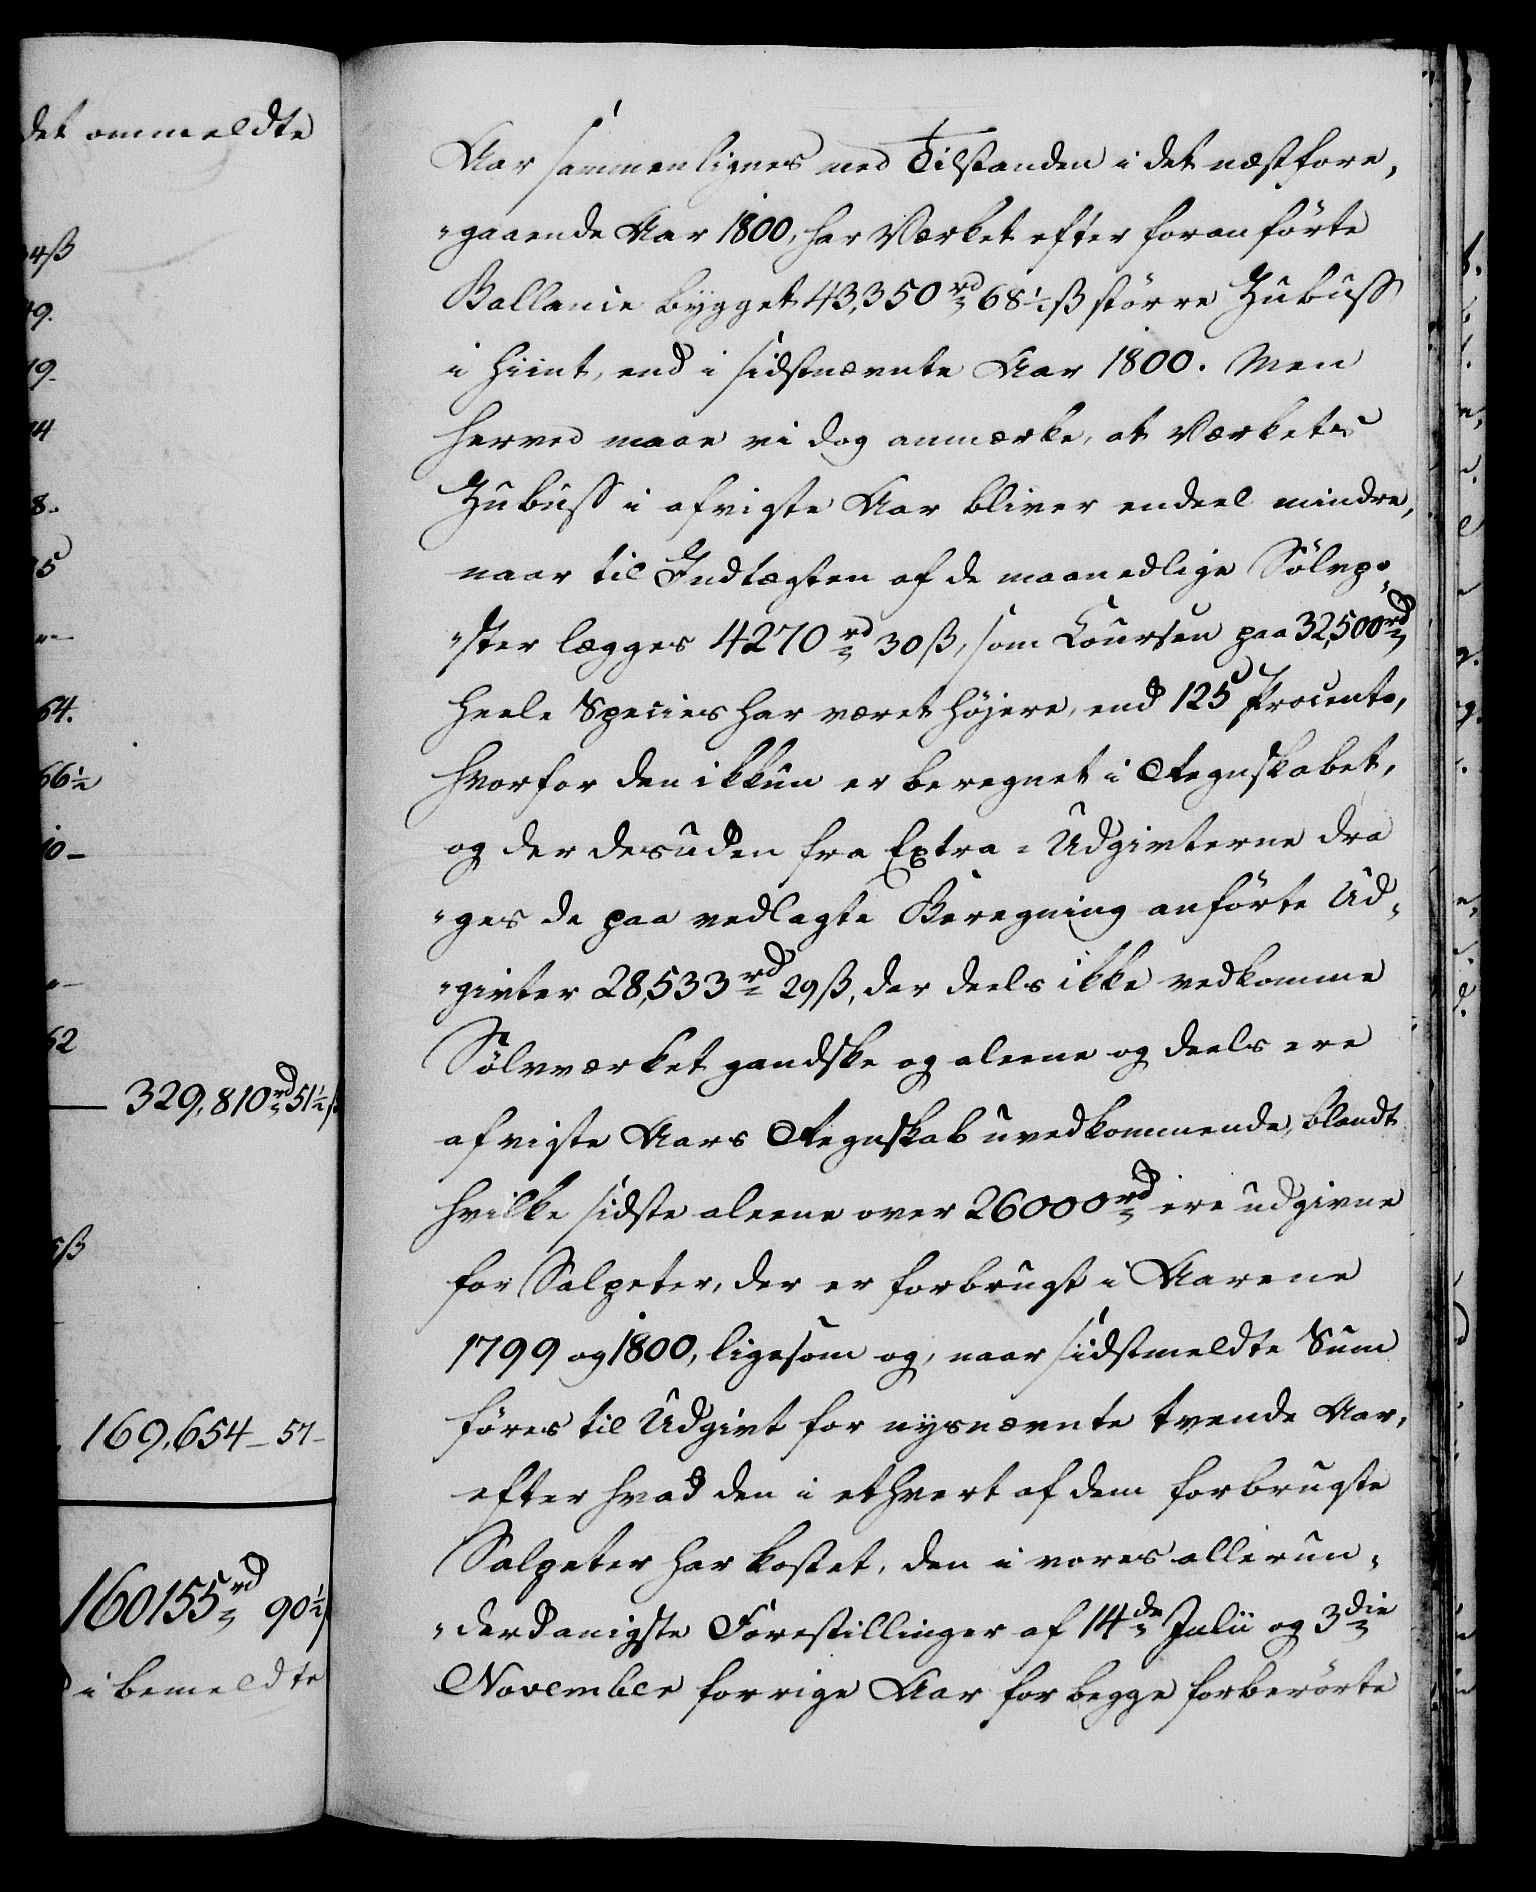 det ommeldte
4ß
9.
19.
14
8.
75
"-
64.
66½
10-
"-
52
329,810rd 51½ß
ß
169,654 - 57-
160155rd 90½ß
i bemeldte
Aar sammenlignes med Tilstanden i det næstfore„
„gaaende Aar 1800, har Værket efter foranførte
Ballance bygget 43,350rd 68½ß større Zubuss
i hiint, end i sidstnævnte Aar 1800. Men
herved maae vi dog anmærke, at Værkets
Zubuss i afvigte Aar bliver endeel mindre,
naar til Indtægten af de maanedlige Sölvpo„
„ster lægges 4270rd 30ß, som Coursen paa 32,500rd
heele Species har været höjere, end 125 Procento,
hvorfor den ikkun er beregnet i Regnskabet,
og der desuden fra Extra-Udgivterne dra
„ges de paa vedlagte Beregning anførte Ud„
„givter 28,533rd 29ß, der deels ikke vedkomme
Sölvværket gandske og aleene og deels ere
afvigte Aars Regnskab uvedkommende, blandt
hvilke sidste aleene over 26000rd ere udgivne
for Salpeter, der er forbrugt i Aarene
1799 og 1800, ligesom og, naar sidstmeldte Sum
føres til Udgivt for nysnævnte tvende Aar,
efter hvad den i ethvert af dem forbrugte
Salpeter har kostet, den i vores allerun„
„derdanigste Forestillinger af 14de Julii og 3die
November forrige Aar for begge forberörte